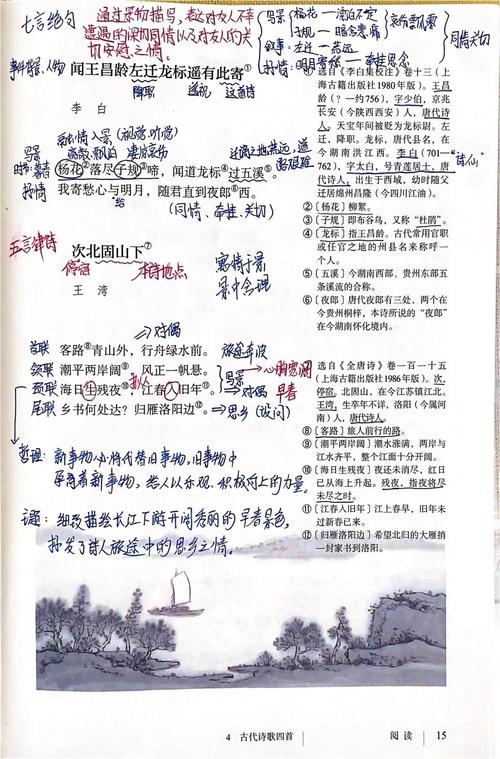 七言绝句
通过景物描写，表达对友人不幸
遭遇的深切同情以及对友人的关
切安慰之情。
写景
杨花—漂泊不定
子规—暗含悲痛
哀伤飘零
叙事：左迁—荒远
抒情：明月寄愁—牵挂思念
同情关切
闻王昌龄左迁龙标遥有此寄①
降职
这首诗
李 白
杨花②落尽子规③啼，闻道龙标④过五溪⑤。
我寄愁心与明月，随君直到夜郎⑥西。
给
（同情、牵挂、关切）
五言律诗
次北固山下⑦
停宿
本诗地点
寓情于景
景中含理
王 湾
对偶
首联
客路⑧青山外，行舟绿水前。
旅途奔波
颔联
潮平两岸阔⑨，风正一帆悬。
写景
心胸宽阔
颈联
海日生残夜⑩，江春入旧年⑪。
拟人
对偶
早春
尾联
乡书何处达？归雁洛阳边⑫。
思乡（设问）
哲理：新事物必将代替旧事物，旧事物中
孕育着新事物，给人以乐观、积极向上的力量。
主题：细致描绘长江下游开阔秀丽的早春景色，
抒发了诗人旅途中的思乡之情。
① 选自《李白集校注》卷十三（上
海古籍出版社1980年版）。王昌
龄（？—约756），字少伯，京兆
长安（今陕西西安）人，唐代诗
人。天宝年间被贬为龙标尉。左
迁，降职。龙标，唐代县名，在
今湖南洪江西。李白（701—
762），字太白，号青莲居士，唐
代诗人，出生于西域，幼时随父
迁居绵州昌隆（今四川江油）。
“诗仙”
②〔杨花〕柳絮。
③〔子规〕即布谷鸟，又称“杜鹃”。
④〔龙标〕指王昌龄。古代常用官职
或任官之地的州县名来称呼一
个人。
⑤〔五溪〕今湖南西部、贵州东部五
条溪流的合称。
⑥〔夜郎〕唐代夜郎有三处，两个在
今贵州桐梓，本诗所说的“夜郎”
在今湖南怀化境内。
⑦ 选自《全唐诗》卷一百一十五
（上海古籍出版社1986年版）。次，
停宿。北固山，在今江苏镇江北。
王湾，生卒年不详，洛阳（今属河
南）人，唐代诗人。
⑧〔客路〕旅人前行的路。
⑨〔潮平两岸阔〕潮水涨满，两岸与
江水齐平，整个江面十分开阔。
⑩〔海日生残夜〕夜还未消尽，红日
已从海上升起。残夜，指夜将尽
未尽之时。
⑪〔江春入旧年〕江上春早，旧年未
过新春已来。
⑫〔归雁洛阳边〕希望北归的大雁捎
一封家书到洛阳。
4 古代诗歌四首
阅读 15